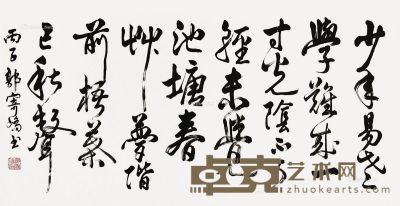 少年易老
學難成一
寸光陰不可
輕未覺
池塘春
艸夢階
前梧葉
已秋聲
丙子郭寄嶠書
卓克艺术网
zhuokearts.com